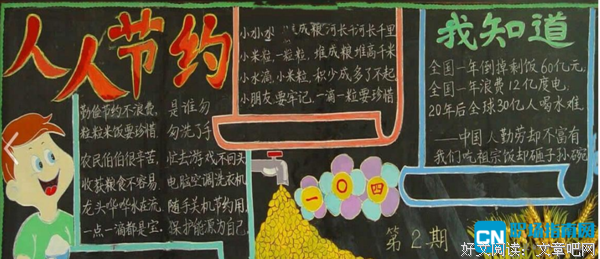 人人节约
勤俭节约不浪费,
粒粒米饭要珍惜.
农民伯伯很辛苦,
收获粮食不容易.
龙头哗哗水在流,
一点一滴都是宝.
是谁匆
匆洗了手
忙去游戏不回头
电脑空调洗衣机
随手关机节约用,
保护能源为自己.
小小水 成河长千河长千里
小米粒,一粒粒,堆成粮堆高千米
小水滴,小米粒,积少成多了不起,
小朋友,要牢记,一滴一粒要珍惜
一〇四
我知道
全国一年倒掉剩饭60亿元,
全国一年浪费12亿度电,
20年后全球30亿人喝水难.
——中国人勤劳却不富有
我们吃祖宗饭却砸子孙碗
第2期
CN
好文阅读:文章吧网